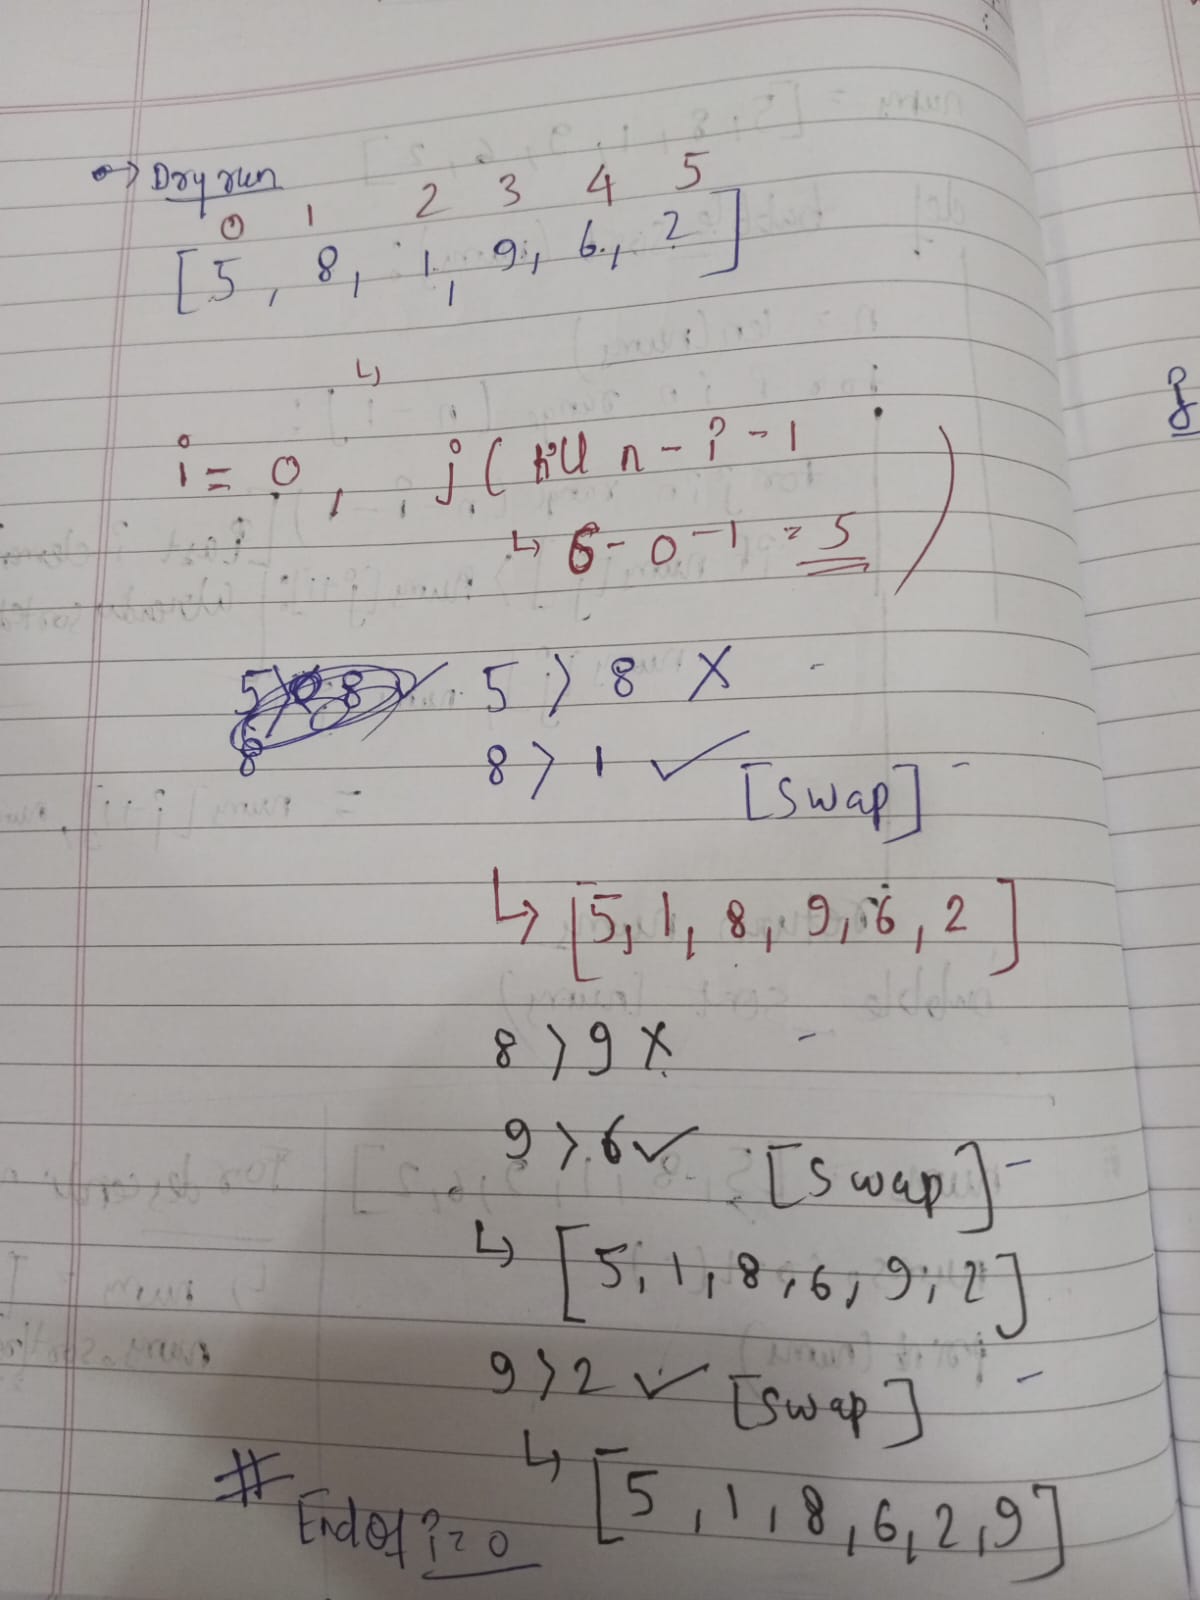 → Dry run
0 1 2 3 4 5
[5, 8, 1, 9, 6, 2]
↳
i = 0, j ( till n - i - 1 )
↳ 6 - 0 - 1 = 5
5 > 8 X -
8
8 > 1 ✓ [Swap] -
↳ [5, 1, 8, 9, 6, 2]
8 > 9 X -
9 > 6 ✓ [Swap] -
↳ [5, 1, 8, 6, 9, 2]
9 > 2 ✓ [Swap] -
↳ [5, 1, 8, 6, 2, 9]
# End of i = 0